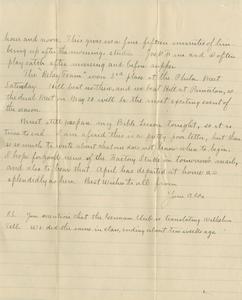 hour and noon. This gives us a few fifteen minutes of limbering up after the morning studies. Joe and I often
play catch after morning and before supper.
The Relay Team won 2nd place at the Phila. Meet
Saturday. Will beat
dual Meet on May 20 will be the most exciting event of the
season.
Must still prepare my Bible Lesson tonight, so it is
time to end. I am afraid this is a pretty poor letter, but there
is so much to write about that one does not know where to begin.
I hope for good news of the Factory Strike in tomorrow's mail,
and also to hear that April has departed at home as
splendidly as here. Best Wishes to all from
Yours
P.S. You mention that the German Club is translating Wilhelm
Tell. We did the same in class, ending about two weeks ago.